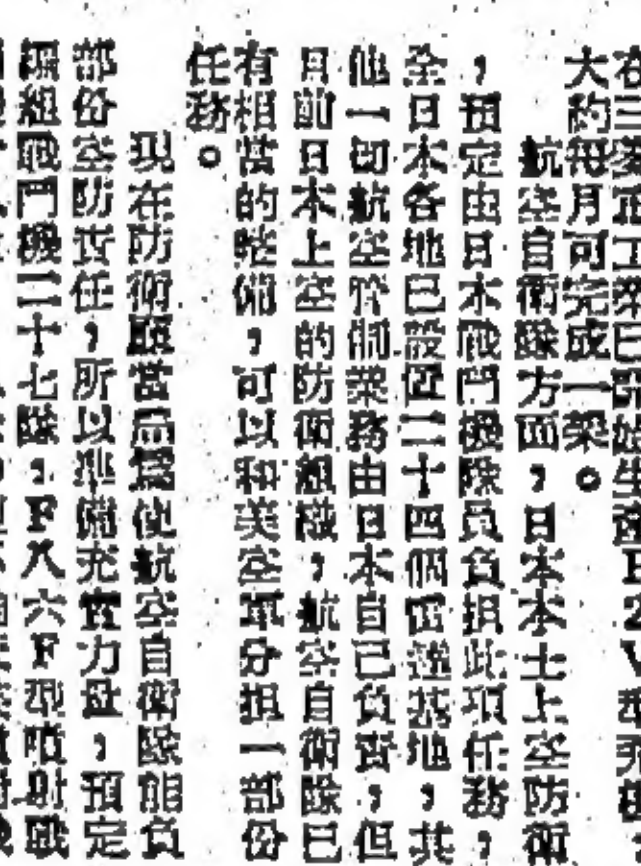 在三菱重工業已開始生產P2V型飛機
大約每月可完成一架。
航空自衛隊方面，日本本土上空防衛
，預定由日本戰鬥機隊員負担此項任務，
全日本各地已設置二十四個雷達基地，其
他一切航空管制業務由日本自己負責，但
目前日本上空的防衛組織，航空自衛隊已
有相當的整備，可以和美空軍分担一部份
任務。
現在防衛廳當局為使航空自衛隊能負
部份空防責任，所以準備充實力量，預定
編組戰鬥機二十七隊，F八六F型噴射戰